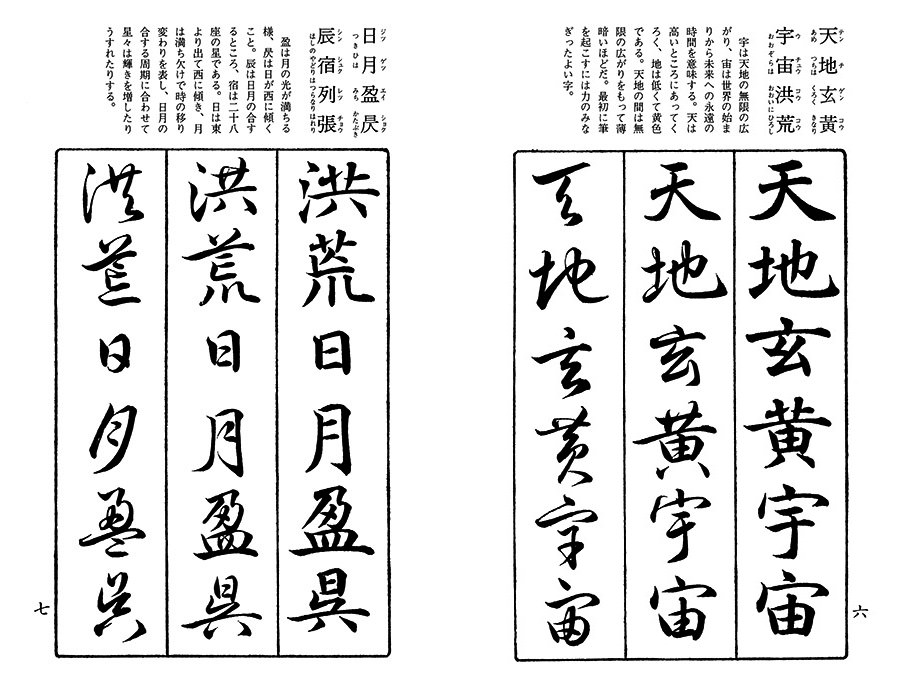 テン チ ゲン コウ
天地玄黃
あめ つちは くろく きなり
ウ チュウ コウ コウ
宇宙洪荒
おおぞらは おおいにひろし
宇は天地の無限の広
がり、宙は世界の始ま
りから未来への永遠の
時間を意味する。天は
高いところにあってく
ろく、地は低くて黄色
である。天地の間は無
限の広がりをもって薄
暗いほどだ。最初に筆
を起こすには力のみな
ぎったよい字。
天地玄黄宇宙
天地玄黄宇宙
天地玄黄宇宙
六
ジツ ゲツ エイ ショク
日月盈昃
つきひは みち かたぶき
シン シュク レツ チョウ
辰宿列張
ほしのやどりはつらなりはれり
盈は月の光が満ちる
様、昃は日が西に傾く
こと。辰は日月の合す
るところ、宿は二十八
座の星である。日は東
より出て西に傾き、月
は満ち欠けで時の移り
変わりを表し、日月の
合する周期に合わせて
星々は輝きを増したり
うすれたりする。
洪荒日月盈昃
洪荒日月盈昃
洪荒日月盈昃
七